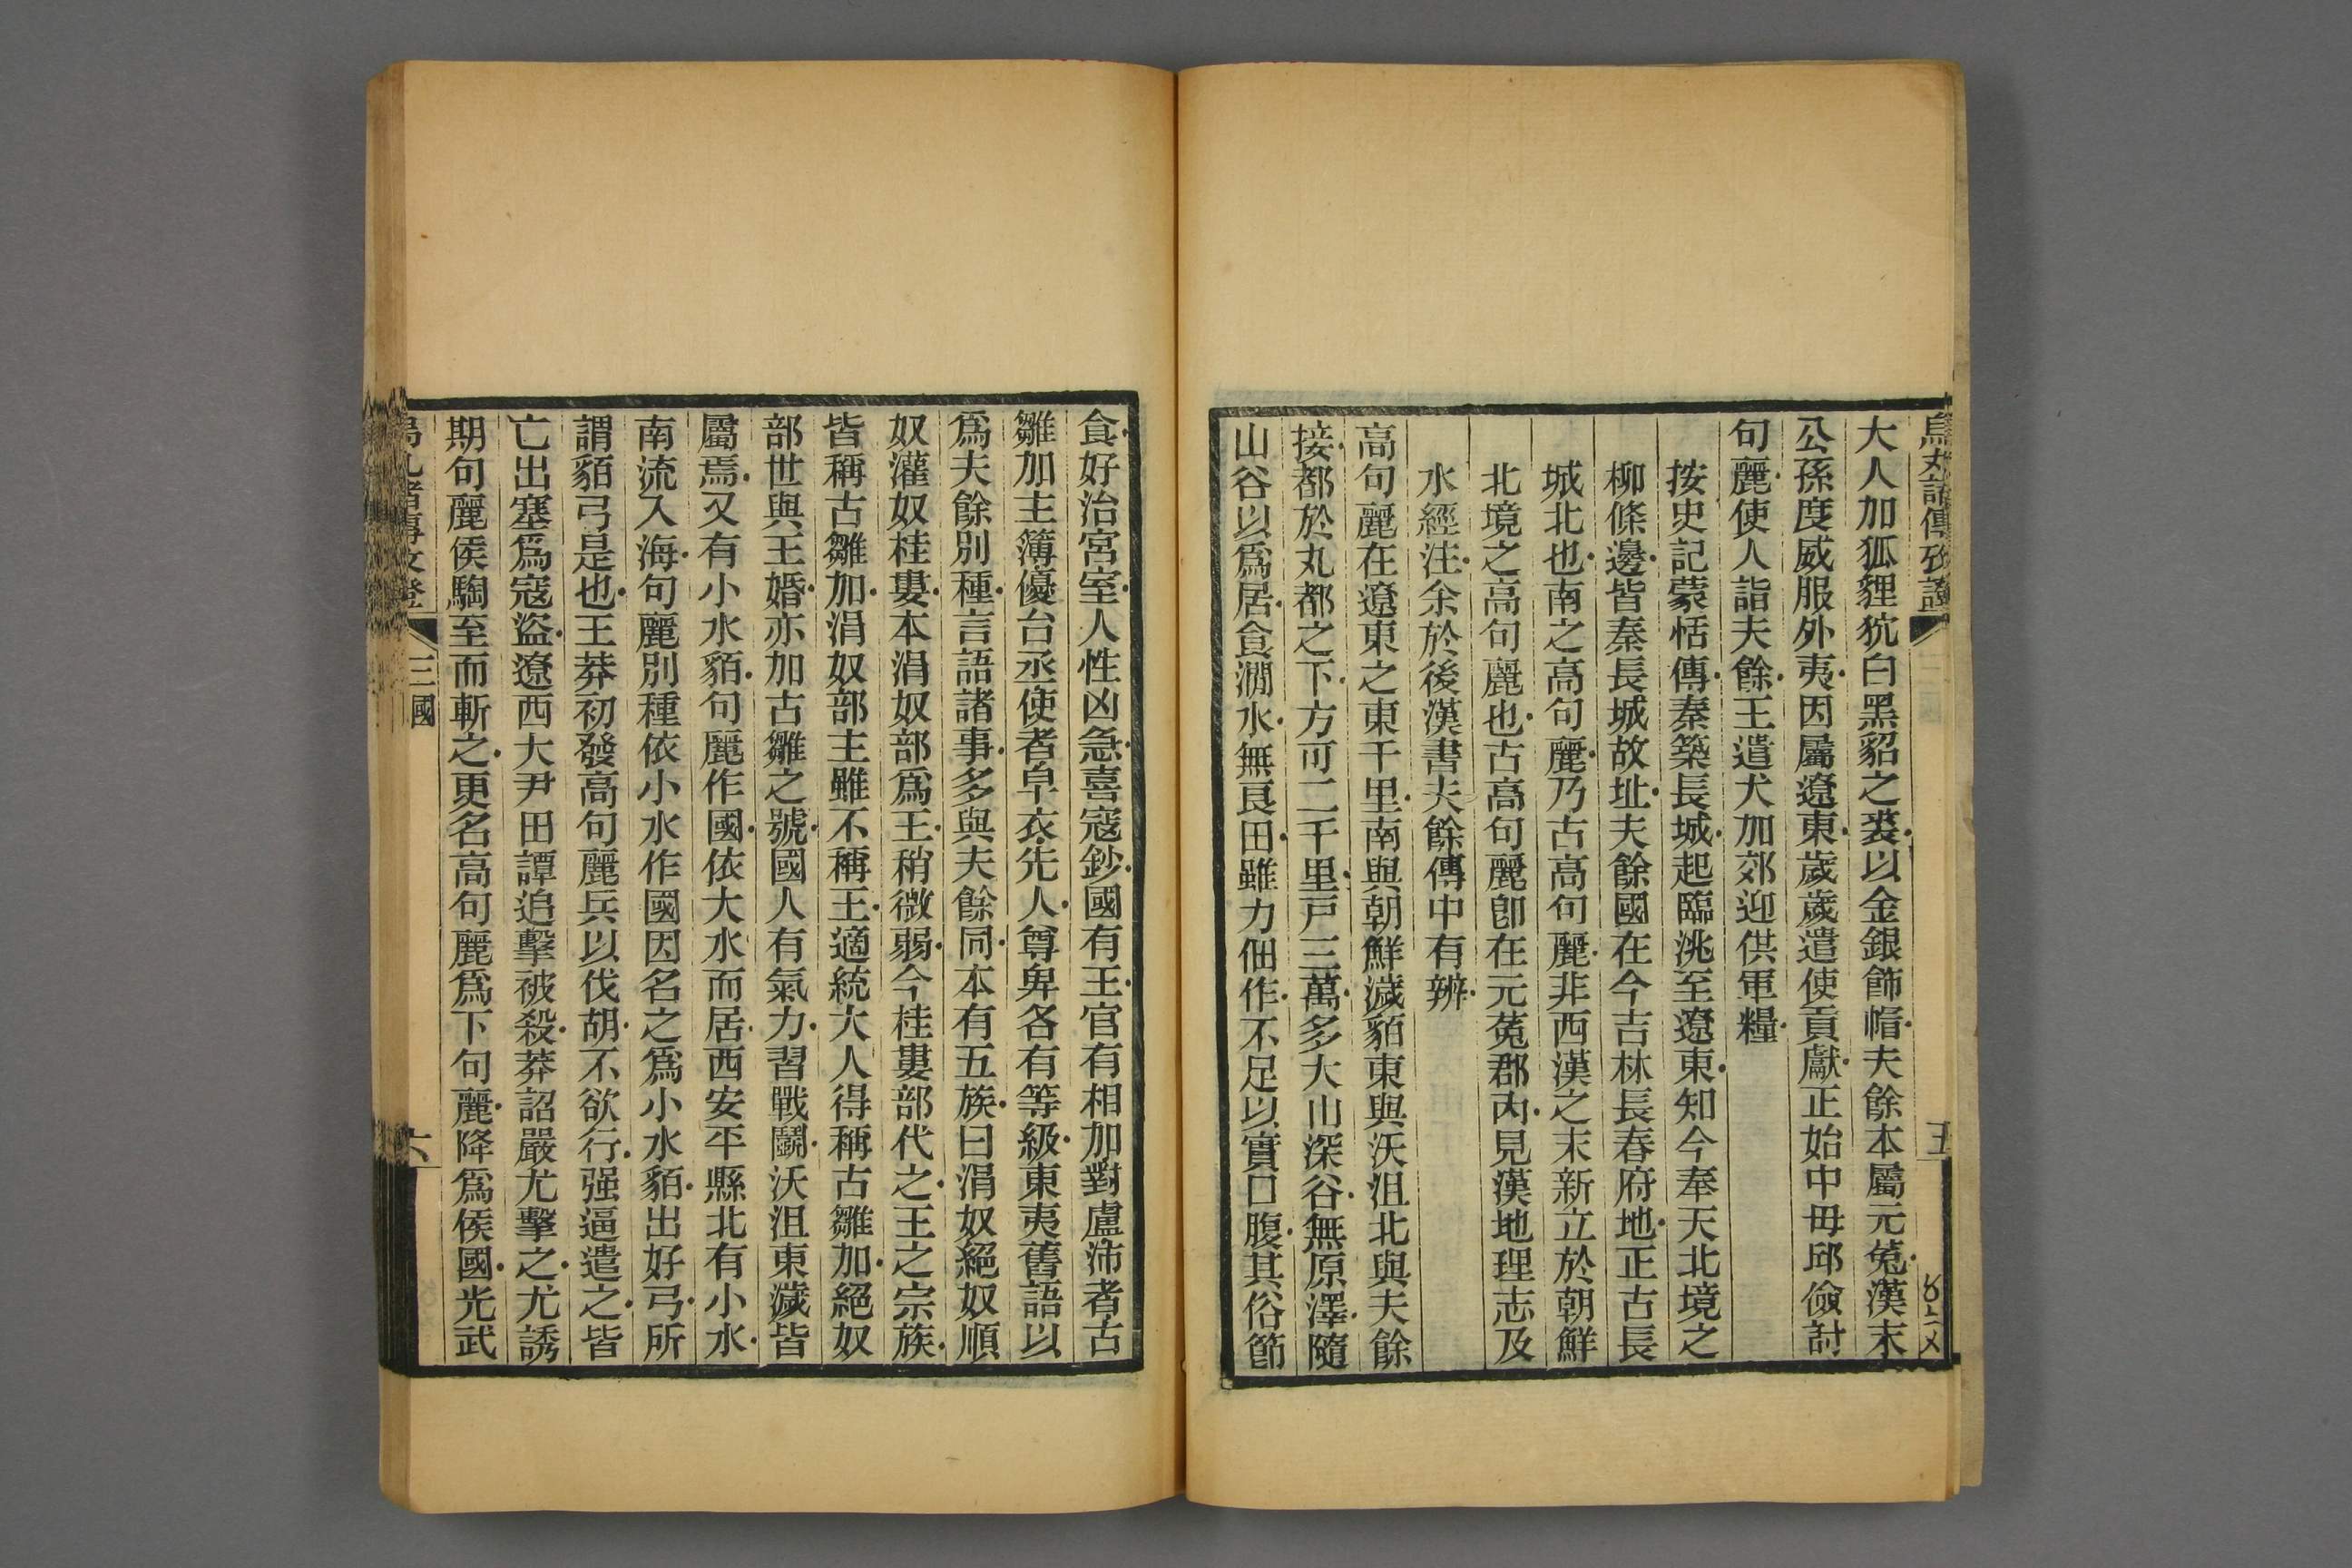 烏丸諸傳攷證
五
大人加狐貍狖白黑貂之裘以金銀飾帽夫餘本屬元菟漢末
公孫度威服外夷因屬遼東歲歲遣使貢獻正始中毋邱儉討
句麗使人詣夫餘王遣犬加郊迎供軍糧
按史記蒙恬傳秦築長城起臨洮至遼東知今奉天北境之
柳條邊皆秦長城故址夫餘國在今吉林長春府地正古長
城北也南之高句麗乃古高句麗非西漢之末新立於朝鮮
北境之高句麗也古高句麗卽在元菟郡內見漢地理志及
水經注余於後漢書夫餘傳中有辨
高句麗在遼東之東千里南與朝鮮濊貊東與沃沮北與夫餘
接都於丸都之下方可二千里戸三萬多大山深谷無原澤隨
山谷以爲居食澗水無良田雖力佃作不足以實口腹其俗節
食好治宮室人性凶急喜寇鈔國有王官有相加對盧沛者古
雛加主簿優台丞使者皁衣先人尊卑各有等級東夷舊語以
爲夫餘別種言語諸事多與夫餘同本有五族曰涓奴絕奴順
奴灌奴桂婁本涓奴部爲王稍微弱今桂婁部代之王之宗族
皆稱古雛加涓奴部主雖不稱王適統大人得稱古雛加絕奴
部世與王婚亦加古雛之號國人有氣力習戰鬭沃沮東濊皆
屬焉又有小水貊句麗作國依大水而居西安平縣北有小水
南流入海句麗別種依小水作國因名之爲小水貊出好弓所
謂貊弓是也王莽初發高句麗兵以伐胡不欲行强逼遣之皆
亡出塞爲寇盜遼西大尹田譚追擊被殺莽詔嚴尤擊之尤誘
期句麗侯騊至而斬之更名高句麗爲下句麗降爲侯國光武
三國
六